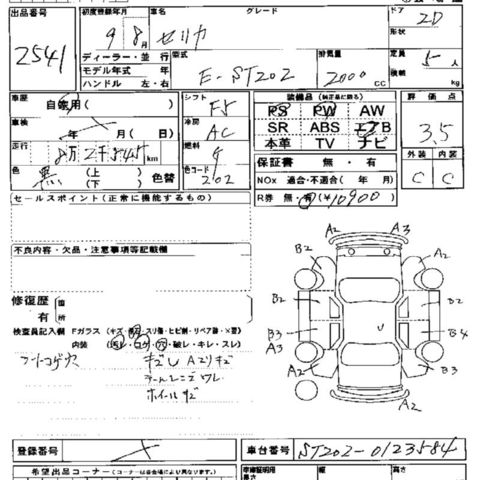 出品番号 初度登録年月 車名 グレード ドア
2541 9 8月 セリカ 2D
形状
ディーラー・並行 型式 排気量 定員
モデル年式 年 E-ST202 2000 CC 5人
ハンドル 左・右 積載 kg
車歴 自家用( ) シフト F5 装備品(純正品に限る) 評価点
PS PW AW
車検 年 月( 日) 冷房 AC SR ABS エアB 3.5
本革 TV ナビ
走行 8万2千545km 燃料 ガ 外装 内装
保証書 無・有 C C
色 黒 (上) (下) 色替 色コード 202 NOx 適合・不適合( 年 月)
R券 無・有(¥10900)
セールスポイント(正常に機能するもの)
不良内容・欠品・注意事項等記載欄
修復歴 箇
有 所
検査員記入欄 Fガラス (キズ・飛石・スリ傷・ヒビ割・リペア跡・×要)
内装 (汚レ・コゲ・穴・破レ・キレ・スレ)
シートコゲ穴 キズ U Aヨリキズ
ワレ
ホイールキズ
A2 A3
B2 A2
B2 B2
U
B3 B4
A3
A2 B3
A2
登録番号 車台番号 ST202-0123584
希望出品コーナー(コーナーは各会場により異なります。) 車庫証明用 縦 高さ
長さ